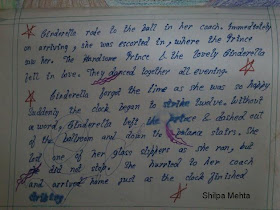 Cinderella rode to the ball in her coach. Immediately
on arriving, she was escorted in, where the Prince
saw her. The Handsome Prince & the lovely Cinderella
fell in love. They danced together all evening.
Cinderella forgot the time as she was so happy
Suddenly the clock began to strike twelve. Without
a word, Cinderella left the prince & dashed out
of the ballroom and down the palace stairs. She
lost one of her glass slippers as she ran, but
did not stop. She hurried to her coach
and arrived home just as the clock finished
Shilpa Mehta